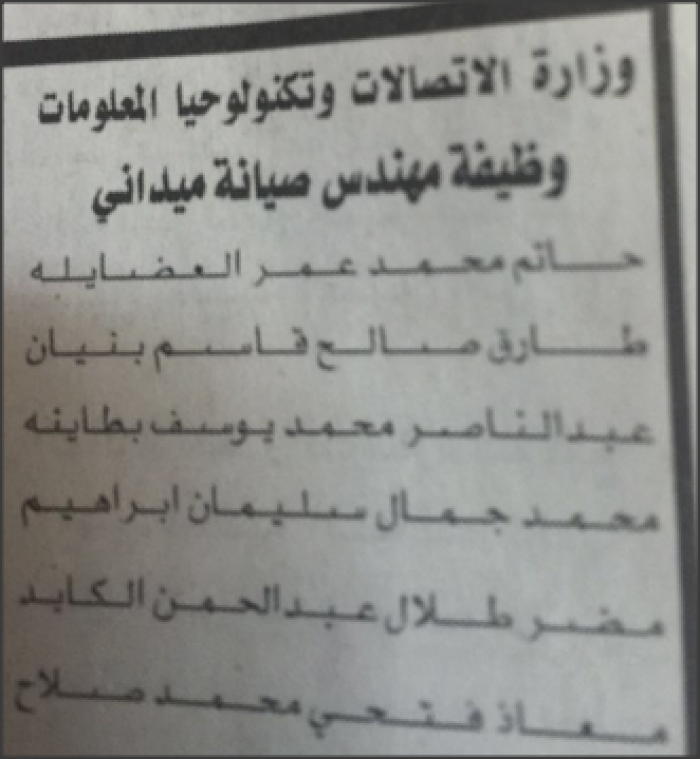 وزارة الاتصالات وتكنولوحيا المعلومات
وظيفة مهندس صيانة ميداني
حاتم محمد عمر العضايله
طارق صالح قاسم بنيان
عبدالناصر محمد يوسف بطاينه
محمد جمال سليمان ابراهيم
مضر طلال عبدالحمن الكايد
معاذ فتحي محمد صلاح